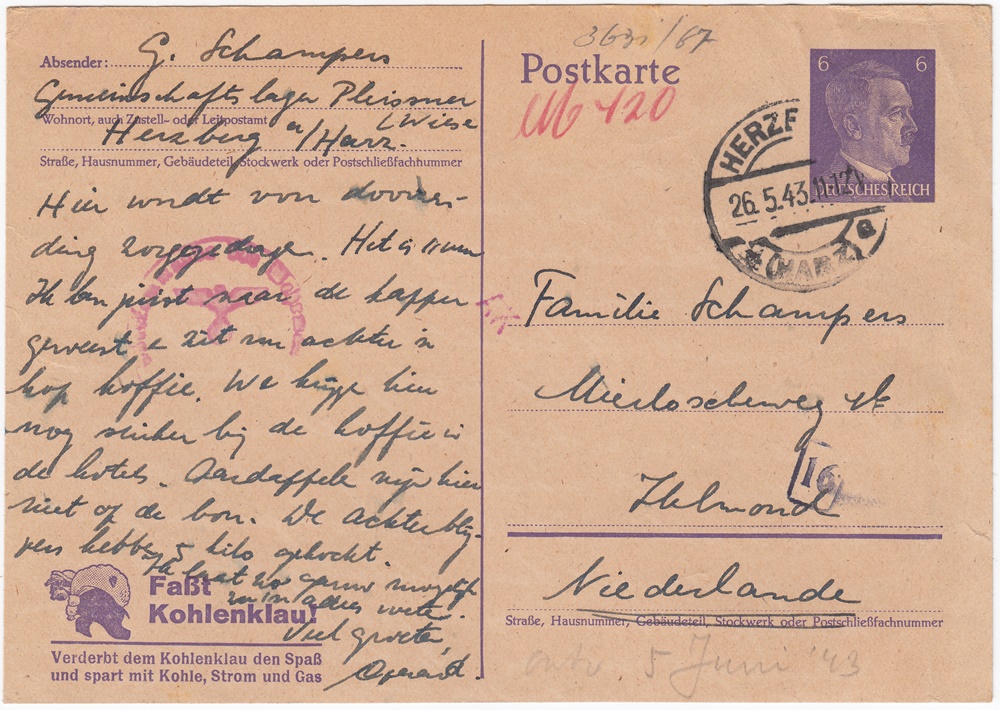 Absender: G. Schampers
Gemeinschaftslager Pleissner
(Wiese
Wohnort, auch Zustell- oder Leitpostamt
Herzberg a/Harz.
Straße, Hausnummer, Gebäudeteil, Stockwerk oder Postschließfachnummer
Hier wordt van
ding
Ik ben juist naar de kapper
geweest achter 'n
kop koffie. We krijgen hier
nog suiker bij de koffie in
de hotels. Aardappelen zijn hier
niet op de bon. De achterblij-
vers hebben 5 kilo gekocht.
Ik laat zoo gauw mogelijk
m'n adres weten.
Veel groeten,
Faßt
Kohlenklau!
Verderbt dem Kohlenklau den Spaß
und spart mit Kohle, Strom und Gas
363i/67
Postkarte
420
6 6
DEUTSCHES REICH
HERZB
26.5.43.11-12
(HARZ)
a
Familie Schampers
Mierloscheweg
16
Helmond
Niederlande
Straße, Hausnummer, Gebäudeteil, Stockwerk oder Postschließfachnummer
ontv. 5 Juni '43